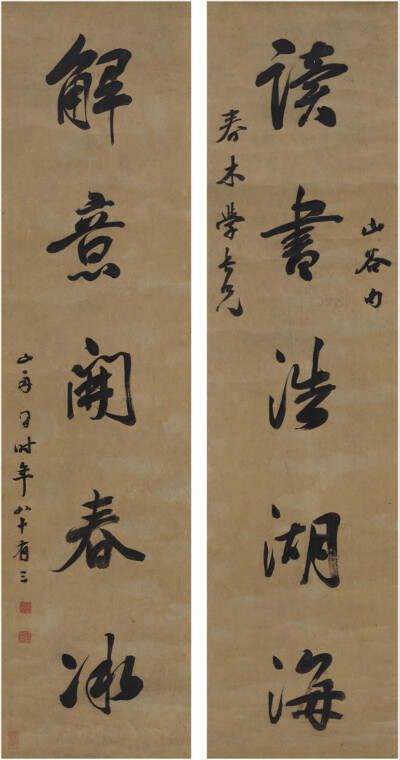 山谷句
讀書浩湖海
春木學長兄
解意開春冰
山舟 時年八十有三